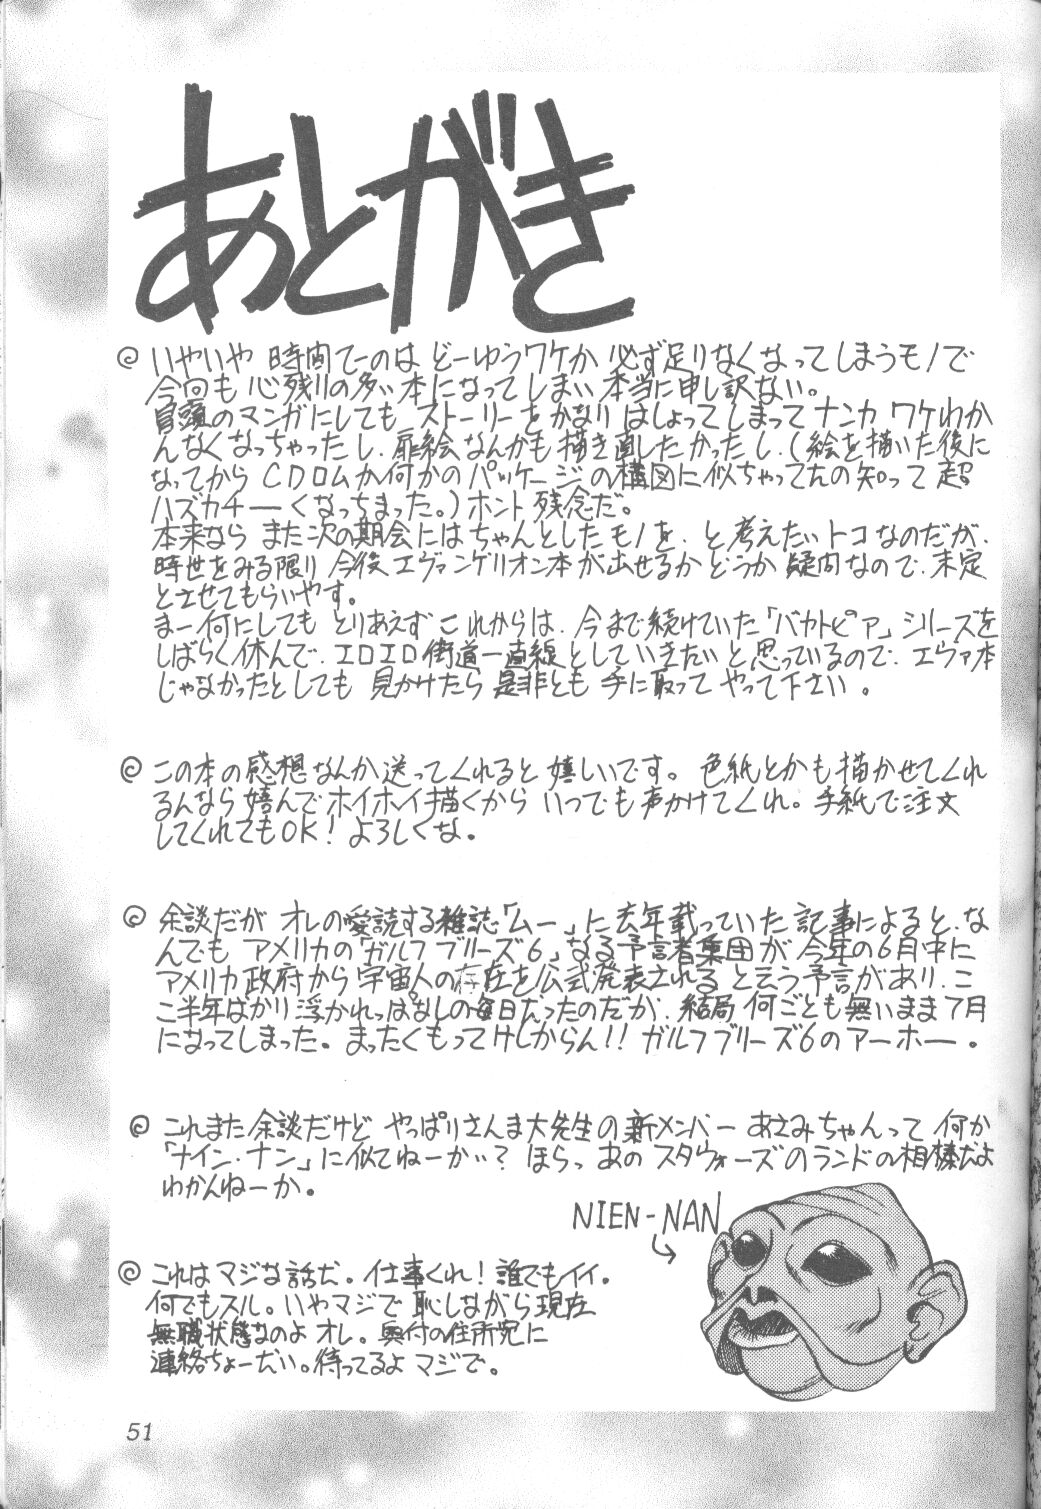 あとがき
いやいや 時間てーのは どーゆうワケか 必ず足りなくなってしまうモノで
今回も 心残りの多い本になってしまい 本当に申し訳ない。
冒頭のマンガにしても ストーリーをかなりはしょってしまってナンカ ワケわか
んなくなっちゃったし、扉絵なんかも描き直したかったし、(絵を描いた後に
なってから CDロムか何かのパッケージの構図に似ちゃってんの知って 超
ハズカチーくなっちまった。) ホント 残念だ。
本来なら また次の期会にはちゃんとしたモノを、と、考えたいトコなのだが、
時世をみる限り 今後エヴァンゲリオン本が出せるかどうか 疑問なので、未定
とさせてもらいやす。
まー何にしても とりあえず これからは、今まで続けていた「バカトピア」シリーズを
しばらく休んで、エロエロ街道一直線としていきたいと思っているので、エヴァ本
じゃなかったとしても 見かけたら 是非とも 手に取って やって下さい。
この本の感想なんか送ってくれると 嬉しいです。 色紙とかも描かせてくれ
るんなら嬉んでホイホイ描くから いつでも声かけてくれ。手紙で注文
してくれてもOK! よろしくな。
余談だが オレの愛読する雑誌「ムー」に去年載っていた 記事によると、な
んでも アメリカの「ガルフブリーズ6」なる予言者集団が 今年の6月中に
アメリカ政府から宇宙人の存在を公式発表されると云う予言があり、こ
こ半年ばかり浮かれっぱなしの毎日だったのだが、結局 何ごとも無いまま7月
になってしまった。まったくもってけしからん!! ガルフブリーズ6のアーホー。
これまた余談だけど やっぱりさんま大先生の新メンバー あさみちゃんって 何か
「ナイン・ナン」に似てねーかい? ほらっ あの スタウォーズのランドの相棒だよ
わかんねーか。
NIEN-NAN
これはマジな話だ。仕事くれ! 誰でもイイ。
何でもスル。いやマジで 恥しながら現在
無職状態なのよ オレ。奥付の住所宛に
連絡ちょーだい。待ってるよ マジで。
51